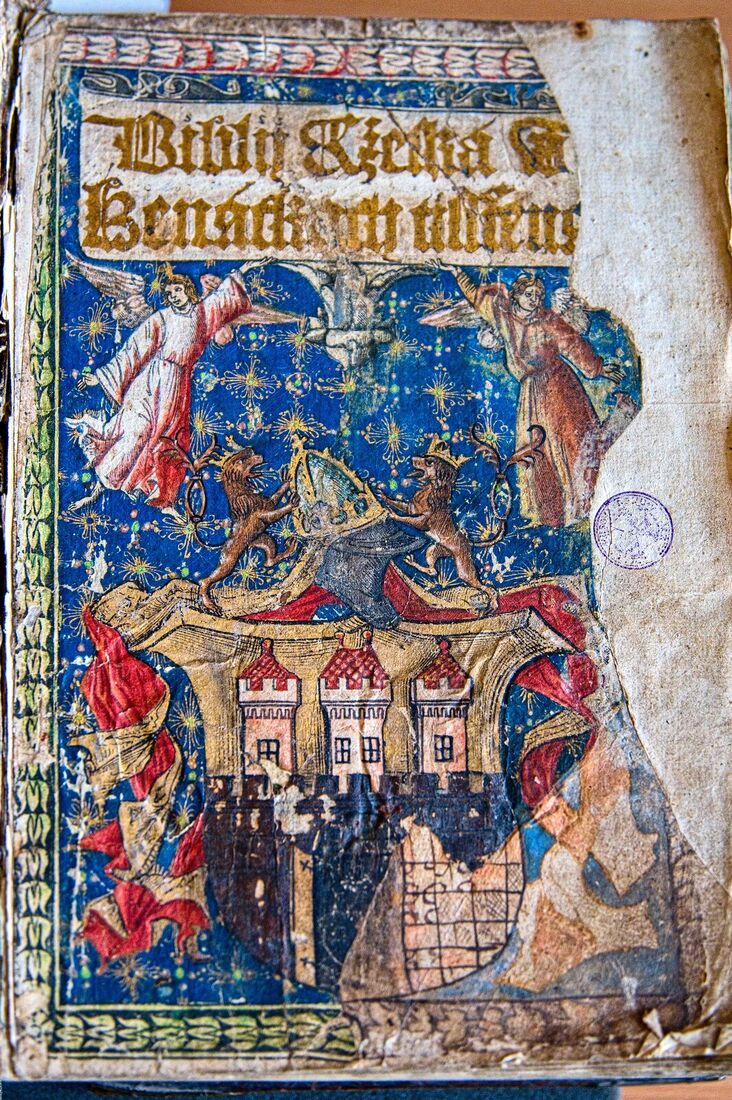 Biblij Cžeska W
Benátkach tisstena